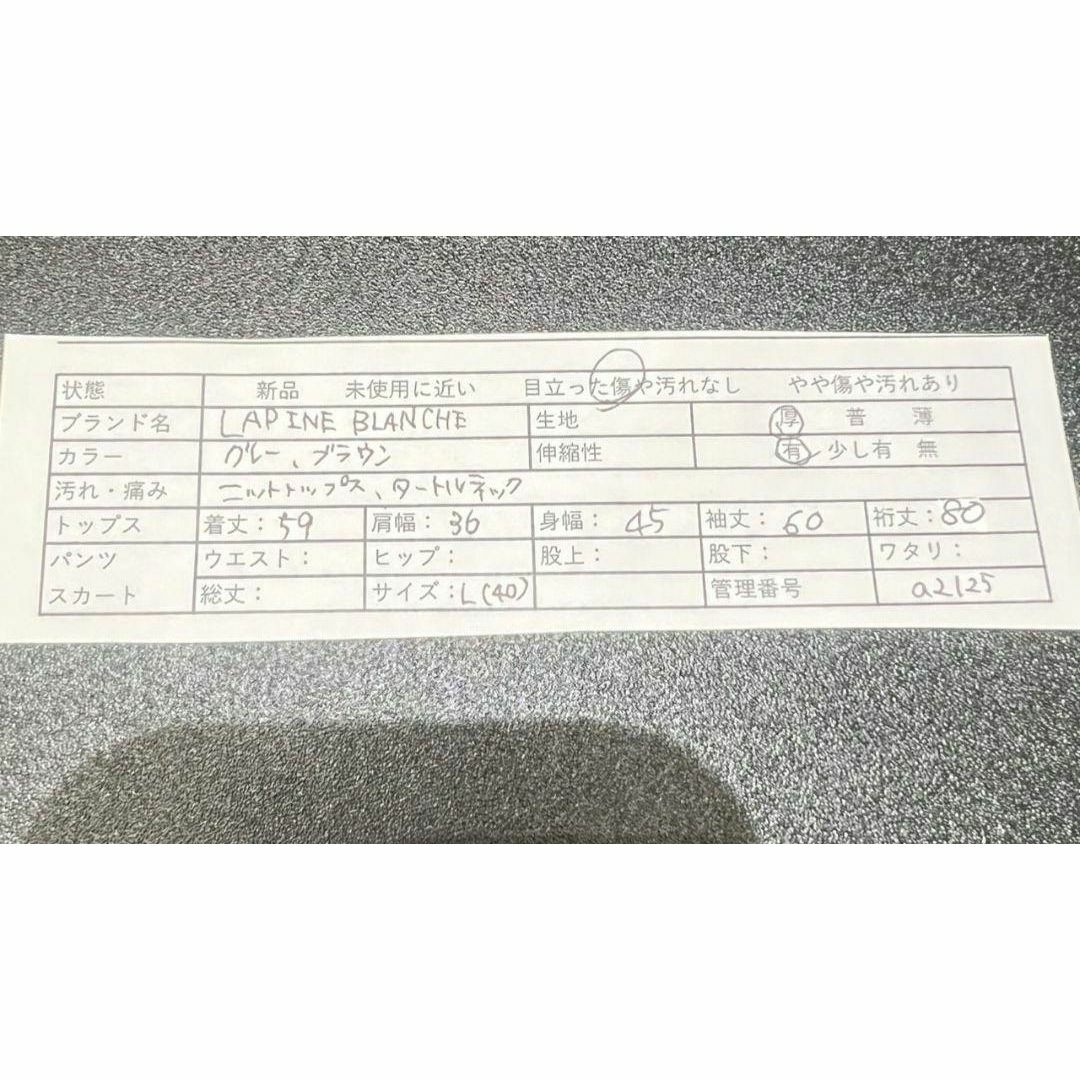 状態 新品 未使用に近い 目立った傷や汚れなし やや傷や汚れあり
ブランド名 LAPINE BLANCHE 生地 厚 普 薄
カラー グレー、ブラウン 伸縮性 有 少し有 無
汚れ・痛み ニットトップス、タートルネック
トップス 着丈：59 肩幅：36 身幅：45 袖丈：60 裄丈：80
パンツ ウエスト： ヒップ： 股上： 股下： ワタリ：
スカート 総丈： サイズ：L(40) 管理番号 a2125